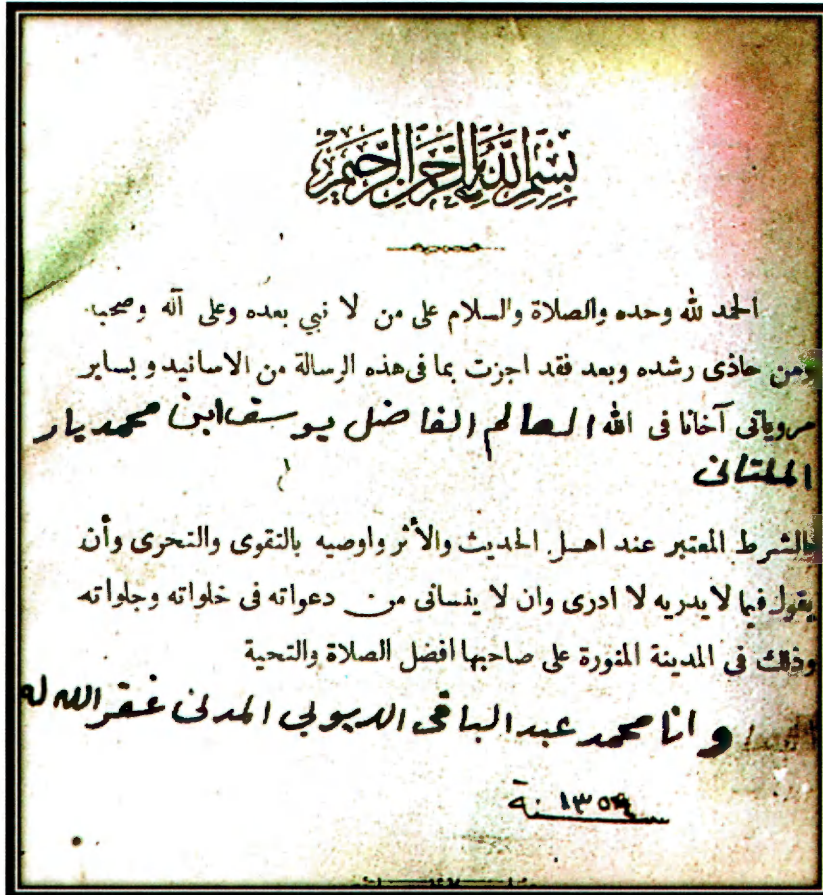 بسم الله الرحمن الرحيم
الحمد لله وحده والصلاة والسلام على من لا نبي بعده وعلى آله وصحبه
ومن حاذى رشده وبعد فقد اجزت بما فى هذه الرسالة من الاسانيد وبساير
مروياتى آخانا فى الله العالم الفاضل يوسف ابن محمد يار
الملتانى
بالشرط المعتبر عند اهل الحديث والأثر واوصيه بالتقوى والتحرى وأن
يقول فيما لا يدريه لا ادرى وان لا ينسانى من دعواته فى خلواته وجلواته
وذلك فى المدينة المنورة على صاحبها افضل الصلاة والتحية
وانا محمد عبد الباقى المدنى غفر الله له
سنة ١٣٥٤